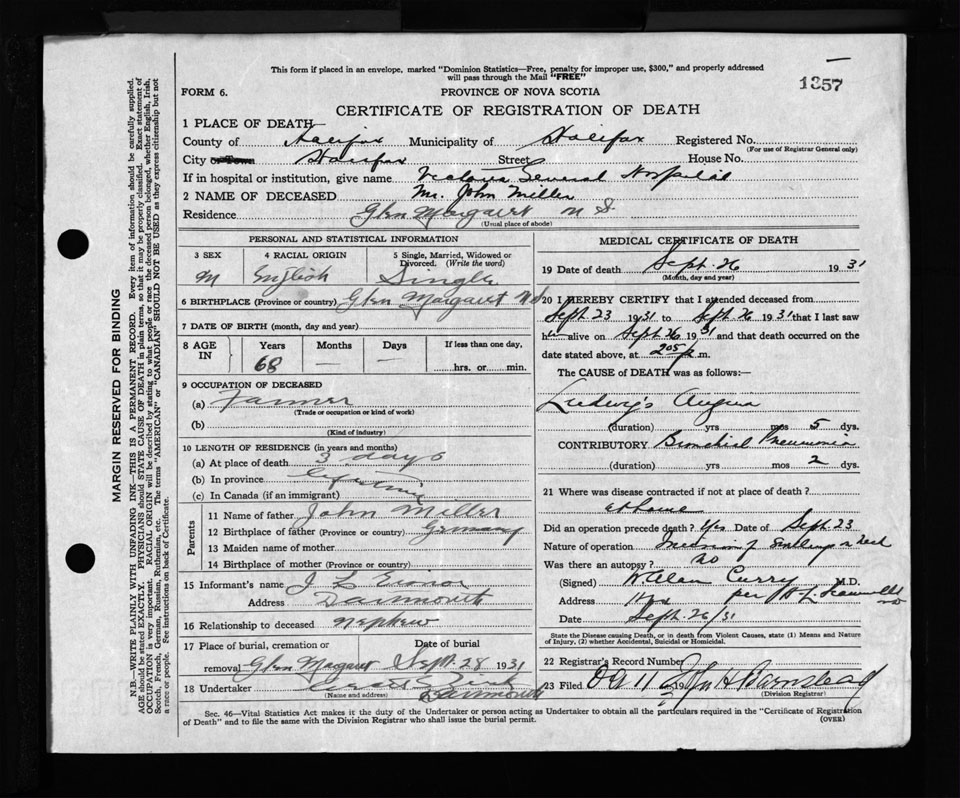 This form if placed in an envelope, marked "Dominion Statistics—Free, penalty for improper use, $300," and properly addressed
will pass through the Mail "FREE"
1357
FORM 6. PROVINCE OF NOVA SCOTIA
CERTIFICATE OF REGISTRATION OF DEATH
1 PLACE OF DEATH—
County of Halifax Municipality of Halifax Registered No.
(For use of Registrar General only)
City or Town Halifax Street House No.
If in hospital or institution, give name Victoria General Hospital
2 NAME OF DECEASED Mr. John Miller
Residence Glen Margaret N S
(Usual place of abode)
PERSONAL AND STATISTICAL INFORMATION
3 SEX 4 RACIAL ORIGIN 5 Single, Married, Widowed or
Divorced. (Write the word)
M English Single
6 BIRTHPLACE (Province or country) Glen Margaret NS
7 DATE OF BIRTH (month, day and year)
8 AGE IN Years Months Days If less than one day,
68 — — hrs. or min.
9 OCCUPATION OF DECEASED
(a) Farmer
(Trade or occupation or kind of work)
(b)
(Kind of industry)
10 LENGTH OF RESIDENCE (in years and months)
(a) At place of death 3 days
(b) In province lifetime
(c) In Canada (if an immigrant)
Parents
11 Name of father John Miller
12 Birthplace of father (Province or country) Germany
13 Maiden name of mother
14 Birthplace of mother (Province or country)
15 Informant's name J L
Address Dartmouth
16 Relationship to deceased Nephew
17 Place of burial, cremation or Date of burial
removal Glen Margaret Sept. 28 1931
18 Undertaker
(Name and address) Dartmouth
MEDICAL CERTIFICATE OF DEATH
19 Date of death Sept. 26 1931
(Month, day and year)
20 I HEREBY CERTIFY that I attended deceased from
Sept 23 1931 to Sept 26 1931 that I last saw
him alive on Sept 26 1931 and that death occurred on the
date stated above, at 2.05 p.m.
The CAUSE of DEATH was as follows:—
Ludwig's Angina
(duration) yrs mos 5 dys.
CONTRIBUTORY Bronchial Pneumonia
(duration) yrs mos 2 dys.
21 Where was disease contracted if not at place of death?
at home
Did an operation precede death? Yes Date of Sept. 23
Nature of operation Incision of Swelling in neck
Was there an autopsy? no
(Signed) W Alan Curry M.D.
Address Hfx per
Date Sept. 26/31
State the Disease causing Death, or in death from Violent Causes, state (1) Means and Nature
of Injury, (2) whether Accidental, Suicidal or Homicidal.
22 Registrar's Record Number
23 Filed Oct 1 19 John H Barnstead
(Division Registrar)
Sec. 46—Vital Statistics Act makes it the duty of the Undertaker or person acting as Undertaker to obtain all the particulars required in the "Certificate of Registration
of Death" and to file the same with the Division Registrar who shall issue the burial permit. (OVER)
MARGIN RESERVED FOR BINDING
N.B.—WRITE PLAINLY WITH UNFADING INK—THIS IS A PERMANENT RECORD. Every item of information should be carefully supplied.
AGE should be stated EXACTLY. PHYSICIANS should STATE CAUSE OF DEATH in plain terms, so that it may be properly classified. Exact statement of
OCCUPATION is very important. RACIAL ORIGIN will be described by stating to what people or race the deceased person belonged, whether English, Irish,
Scotch, French, German, Russian, Ruthenian, etc. The terms "AMERICAN" or "CANADIAN" SHOULD NOT BE USED as they express citizenship but not
a race or people. See instructions on back of Certificate.